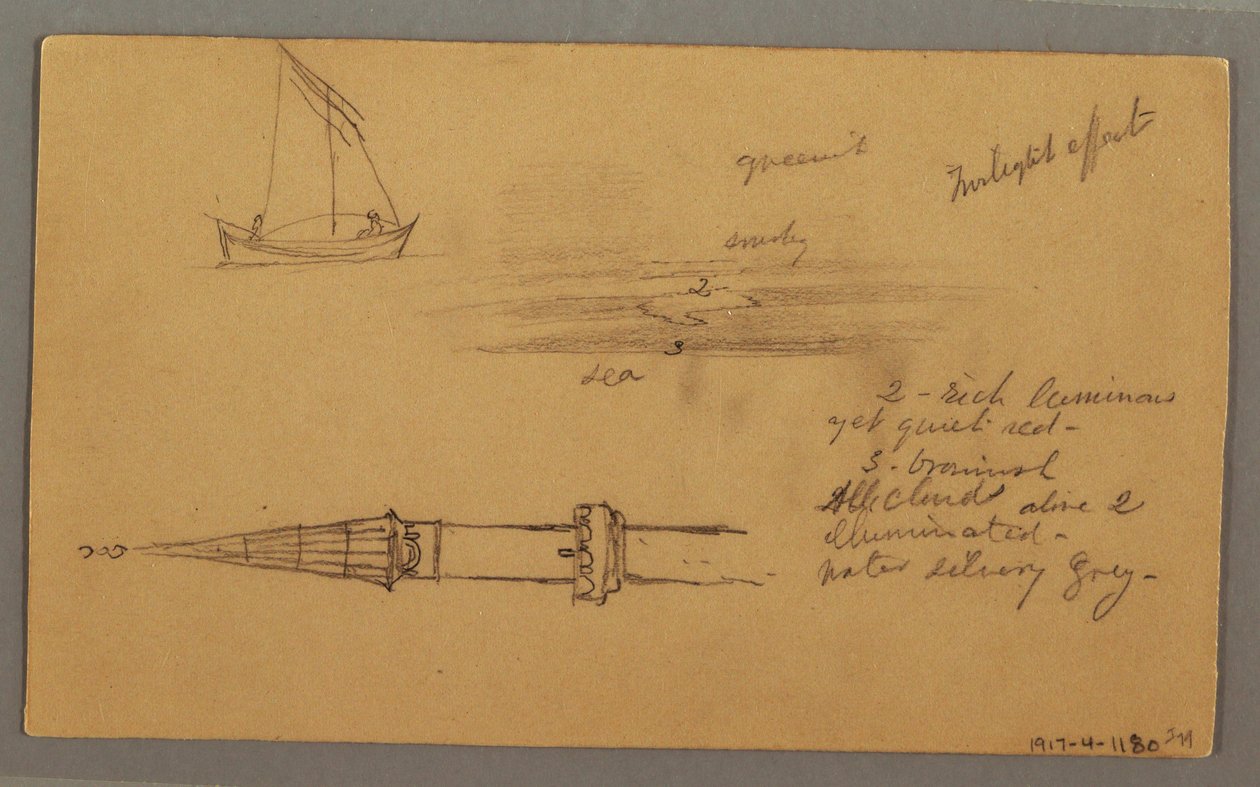 Twilight effect
greenish
smoky
2
3
sea
2 - rich luminous
yet quiet red -
3 - brownish
All clouds above 2
illuminated -
water silvery grey -
1917-4-1180